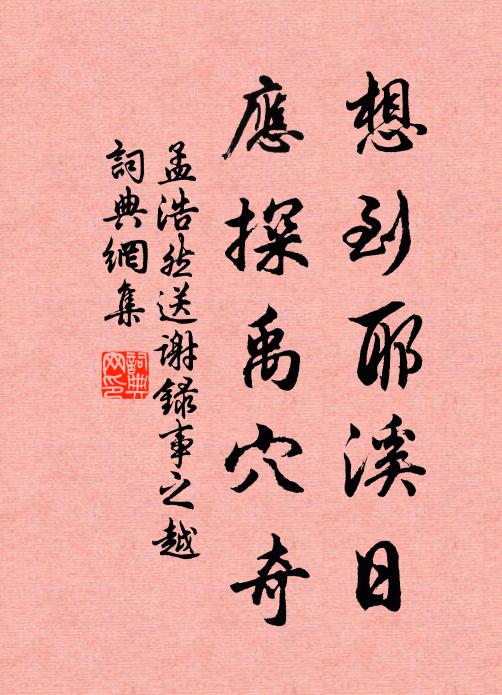 想到耶溪日
應探禹穴奇
孟浩然送謝錄事之越
詞典網集
詞典
网印